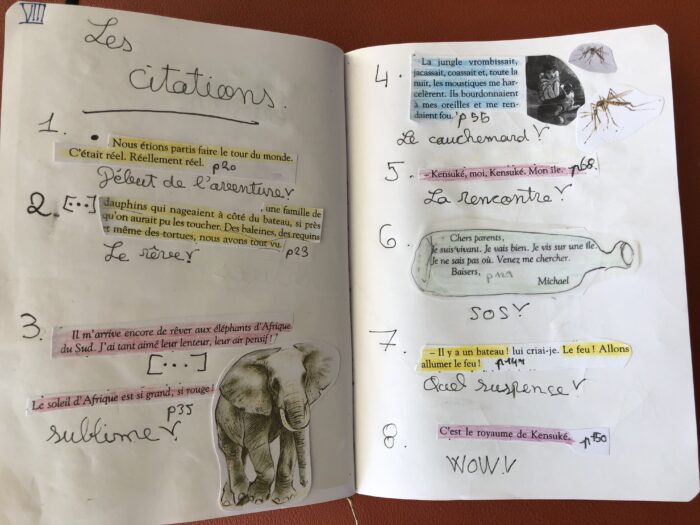 VIII
Les
citations.
1.
• Nous étions partis faire le tour du monde.
C'était réel. Réellement réel. p20
Début de l'aventure!
2. [...] une famille de
dauphins qui nageaient à côté du bateau, si près
qu'on aurait pu les toucher. Des baleines, des requins
et même des tortues, nous avons tout vu. p23
Le rêve!
3.
Il m'arrive encore de rêver aux éléphants d'Afrique
du Sud. J'ai tant aimé leur lenteur, leur air pensif !
[...]
Le soleil d'Afrique est si grand, si rouge !
p35
sublime!
4.
La jungle vrombissait,
jacassait, coassait et, toute la
nuit, les moustiques me har-
celèrent. Ils bourdonnaient
à mes oreilles et me ren-
daient fou. p55
Le couchemard!
5. – Kensuké, moi, Kensuké. Mon île. p68
La rencontre!
6
Chers parents,
Je suis vivant. Je vais bien. Je vis sur une île.
Je ne sais pas où. Venez me chercher.
Baisers,
Michael
SOS!
7. – Il y a un bateau ! lui criai-je. Le feu ! Allons
allumer le feu !
Quel suspence!
8 C'est le royaume de Kensuké. p150
WOW!